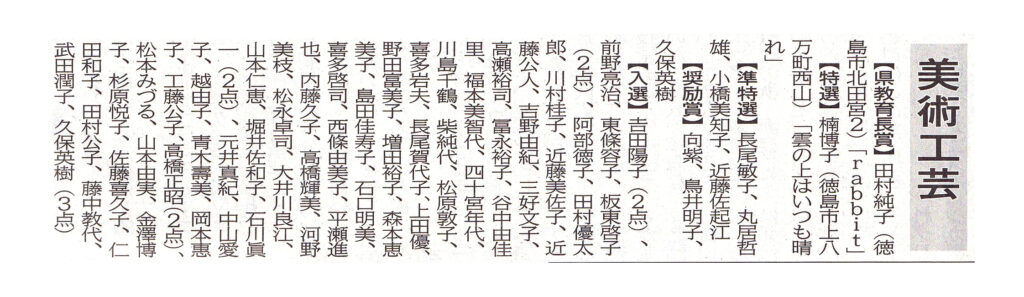 美術工芸
【県教育長賞】田村純子（徳
島市北田宮２）「ｒａｂｂｉｔ」
【特選】楠博子（徳島市上八
万町西山）「雲の上はいつも晴
れ」
【準特選】長尾敏子、丸居哲
雄、小橋美知子、近藤佐起江
【奨励賞】向紫、島井明子、
久保英樹
【入選】吉田陽子（２点）、
前野亮治、東條容子、板東啓子
（２点）、阿部徳子、田村優太
郎、川村桂子、近藤美佐子、近
藤公人、吉野由紀、三好文子、
高瀬裕司、冨永裕子、谷中由佳
里、福本美智代、四十宮年代、
川島千鶴、柴純代、松原敦子、
喜多岩夫、長尾賀代子、上田優、
野田富美子、増田裕子、森本恵
美子、島田佳寿子、石口明美、
喜多啓司、西條由美子、平瀬進
也、内藤久子、高橋輝美、河野
美枝、松永卓司、大井川良江、
山本仁恵、堀井佐和子、石川眞
一（２点）、元井真紀、中山愛
子、越由子、青木壽美、岡本恵
子、工藤公子、高橋正昭（２点）、
松本みつる、山本由実、金澤博
子、杉原悦子、佐藤喜久子、仁
田和子、田村公子、藤中教代、
武田潤子、久保英樹（３点）